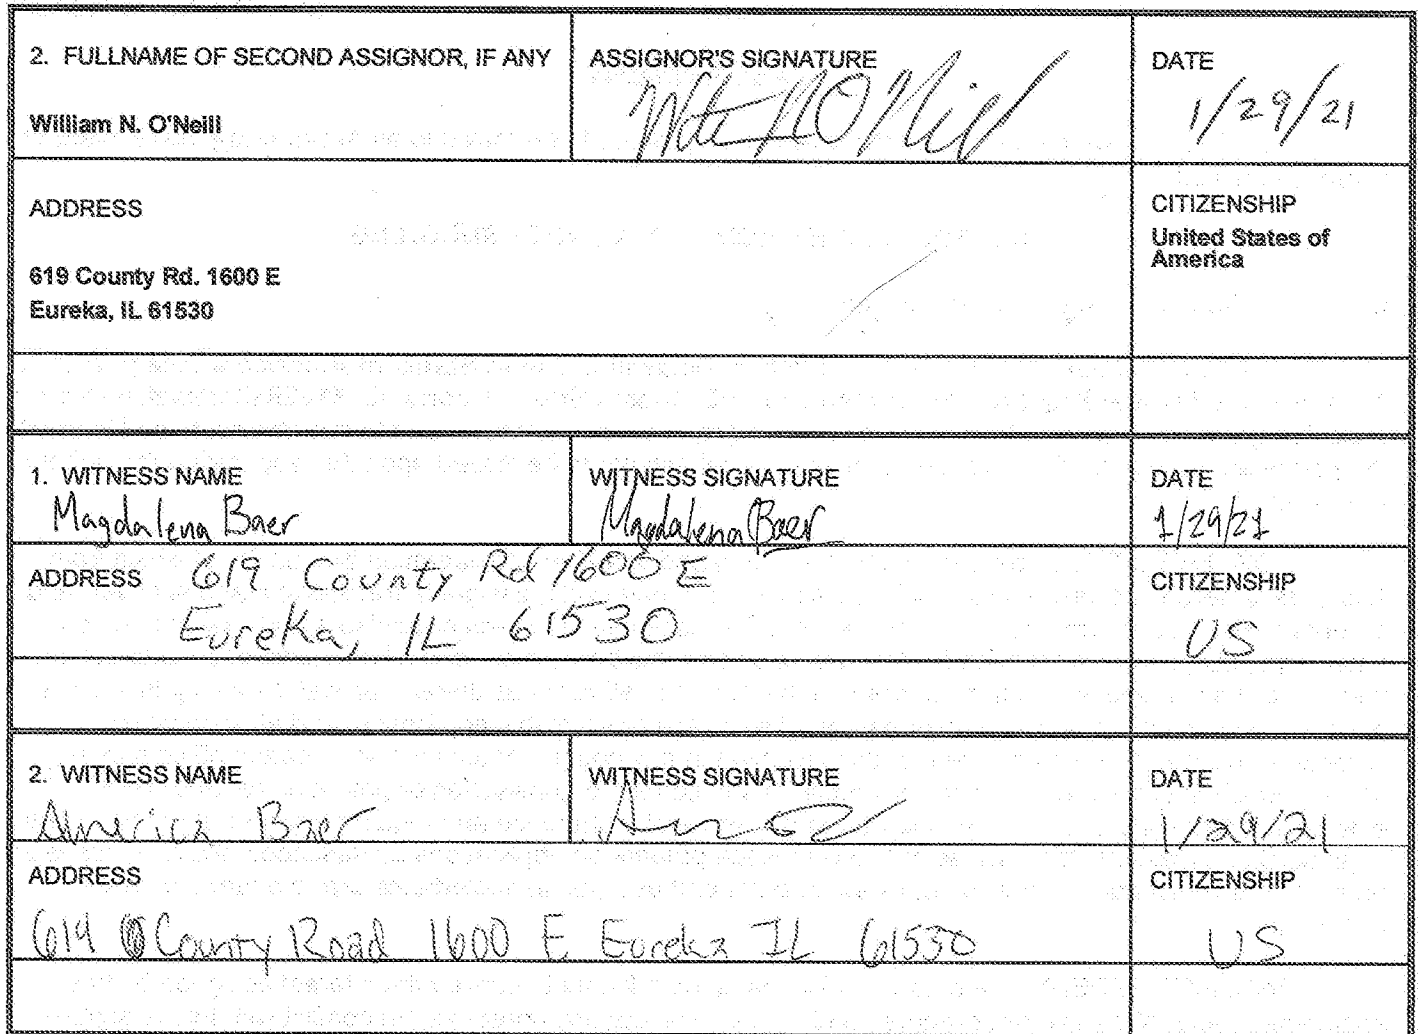 2. FULLNAME OF SECOND ASSIGNOR, IF ANY
William N. O'Neill
ASSIGNOR'S SIGNATURE
DATE
1/29/21
ADDRESS
619 County Rd. 1600 E
Eureka, IL 61530
CITIZENSHIP
United States of
America
1. WITNESS NAME
Magdalena Baer
WITNESS SIGNATURE
Magdalena Baer
DATE
1/29/21
ADDRESS 619 County Rd 1600 E
Eureka, IL 61530
CITIZENSHIP
US
2. WITNESS NAME
America Baer
WITNESS SIGNATURE
DATE
1/29/21
ADDRESS
619 County Road 1600 E Eureka IL 61530
CITIZENSHIP
US